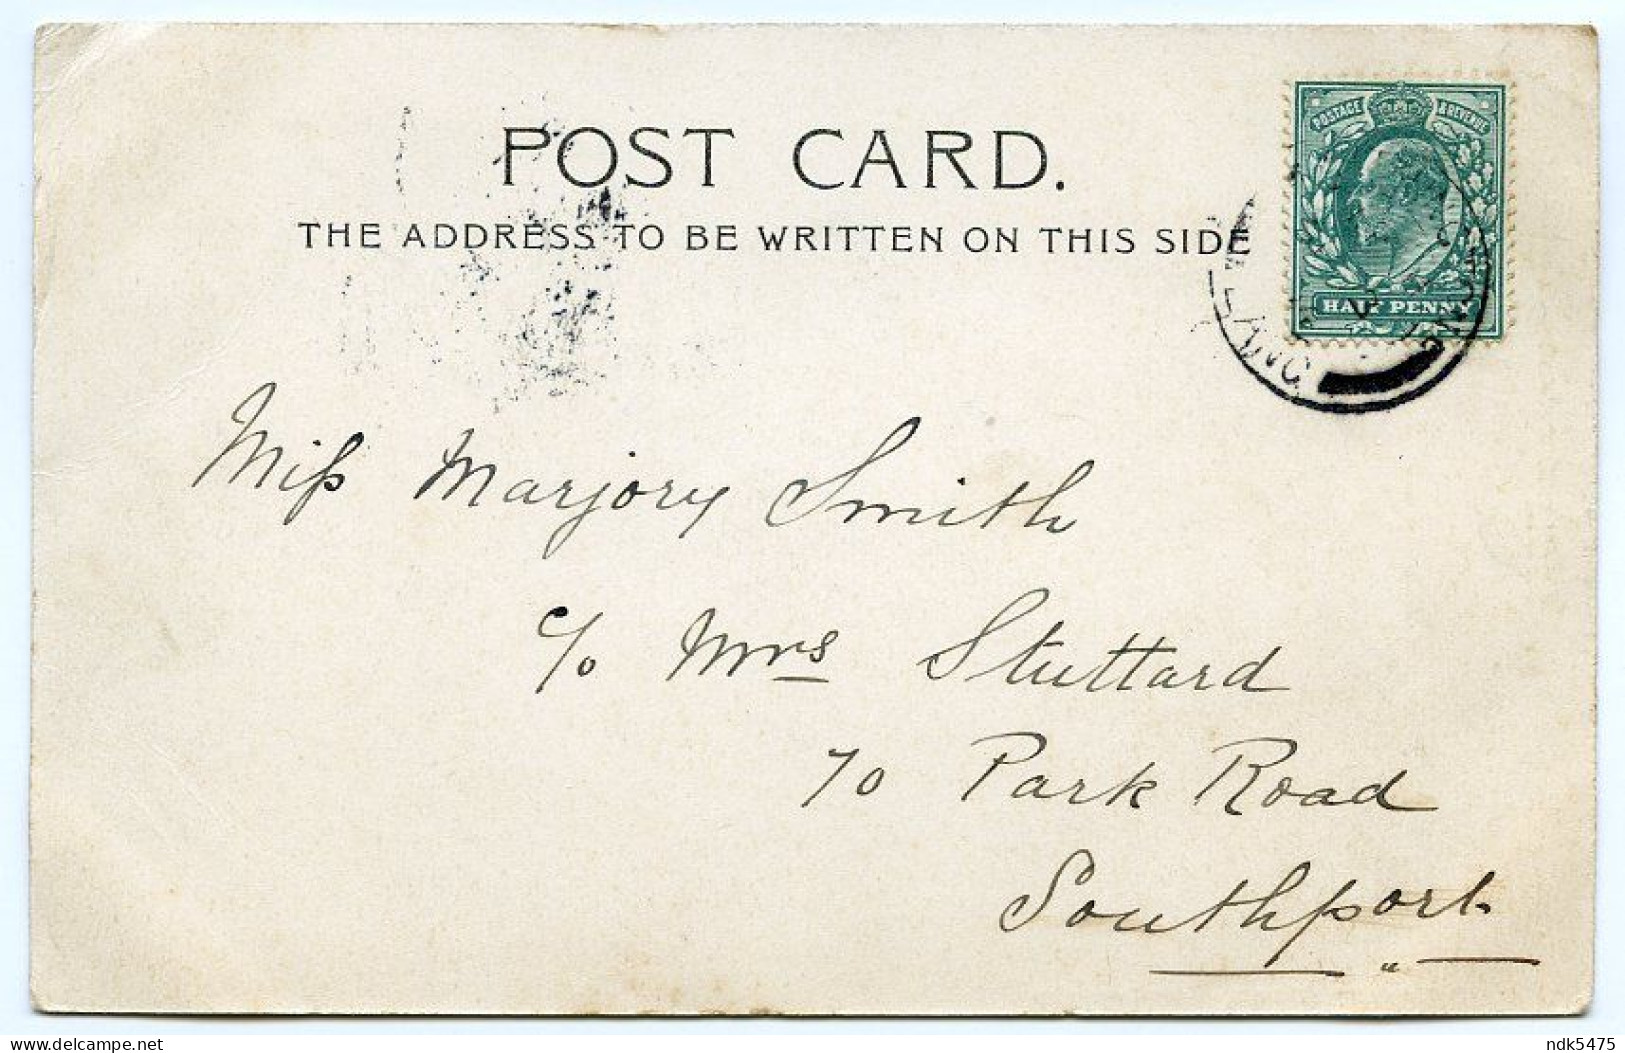 POST CARD.
THE ADDRESS TO BE WRITTEN ON THIS SIDE
POSTAGE & REVENUE
HALF PENNY
Miss Marjory Smith
c/o Mrs Stuttard
70 Park Road
Southport.
delcampe.net
ndk5475